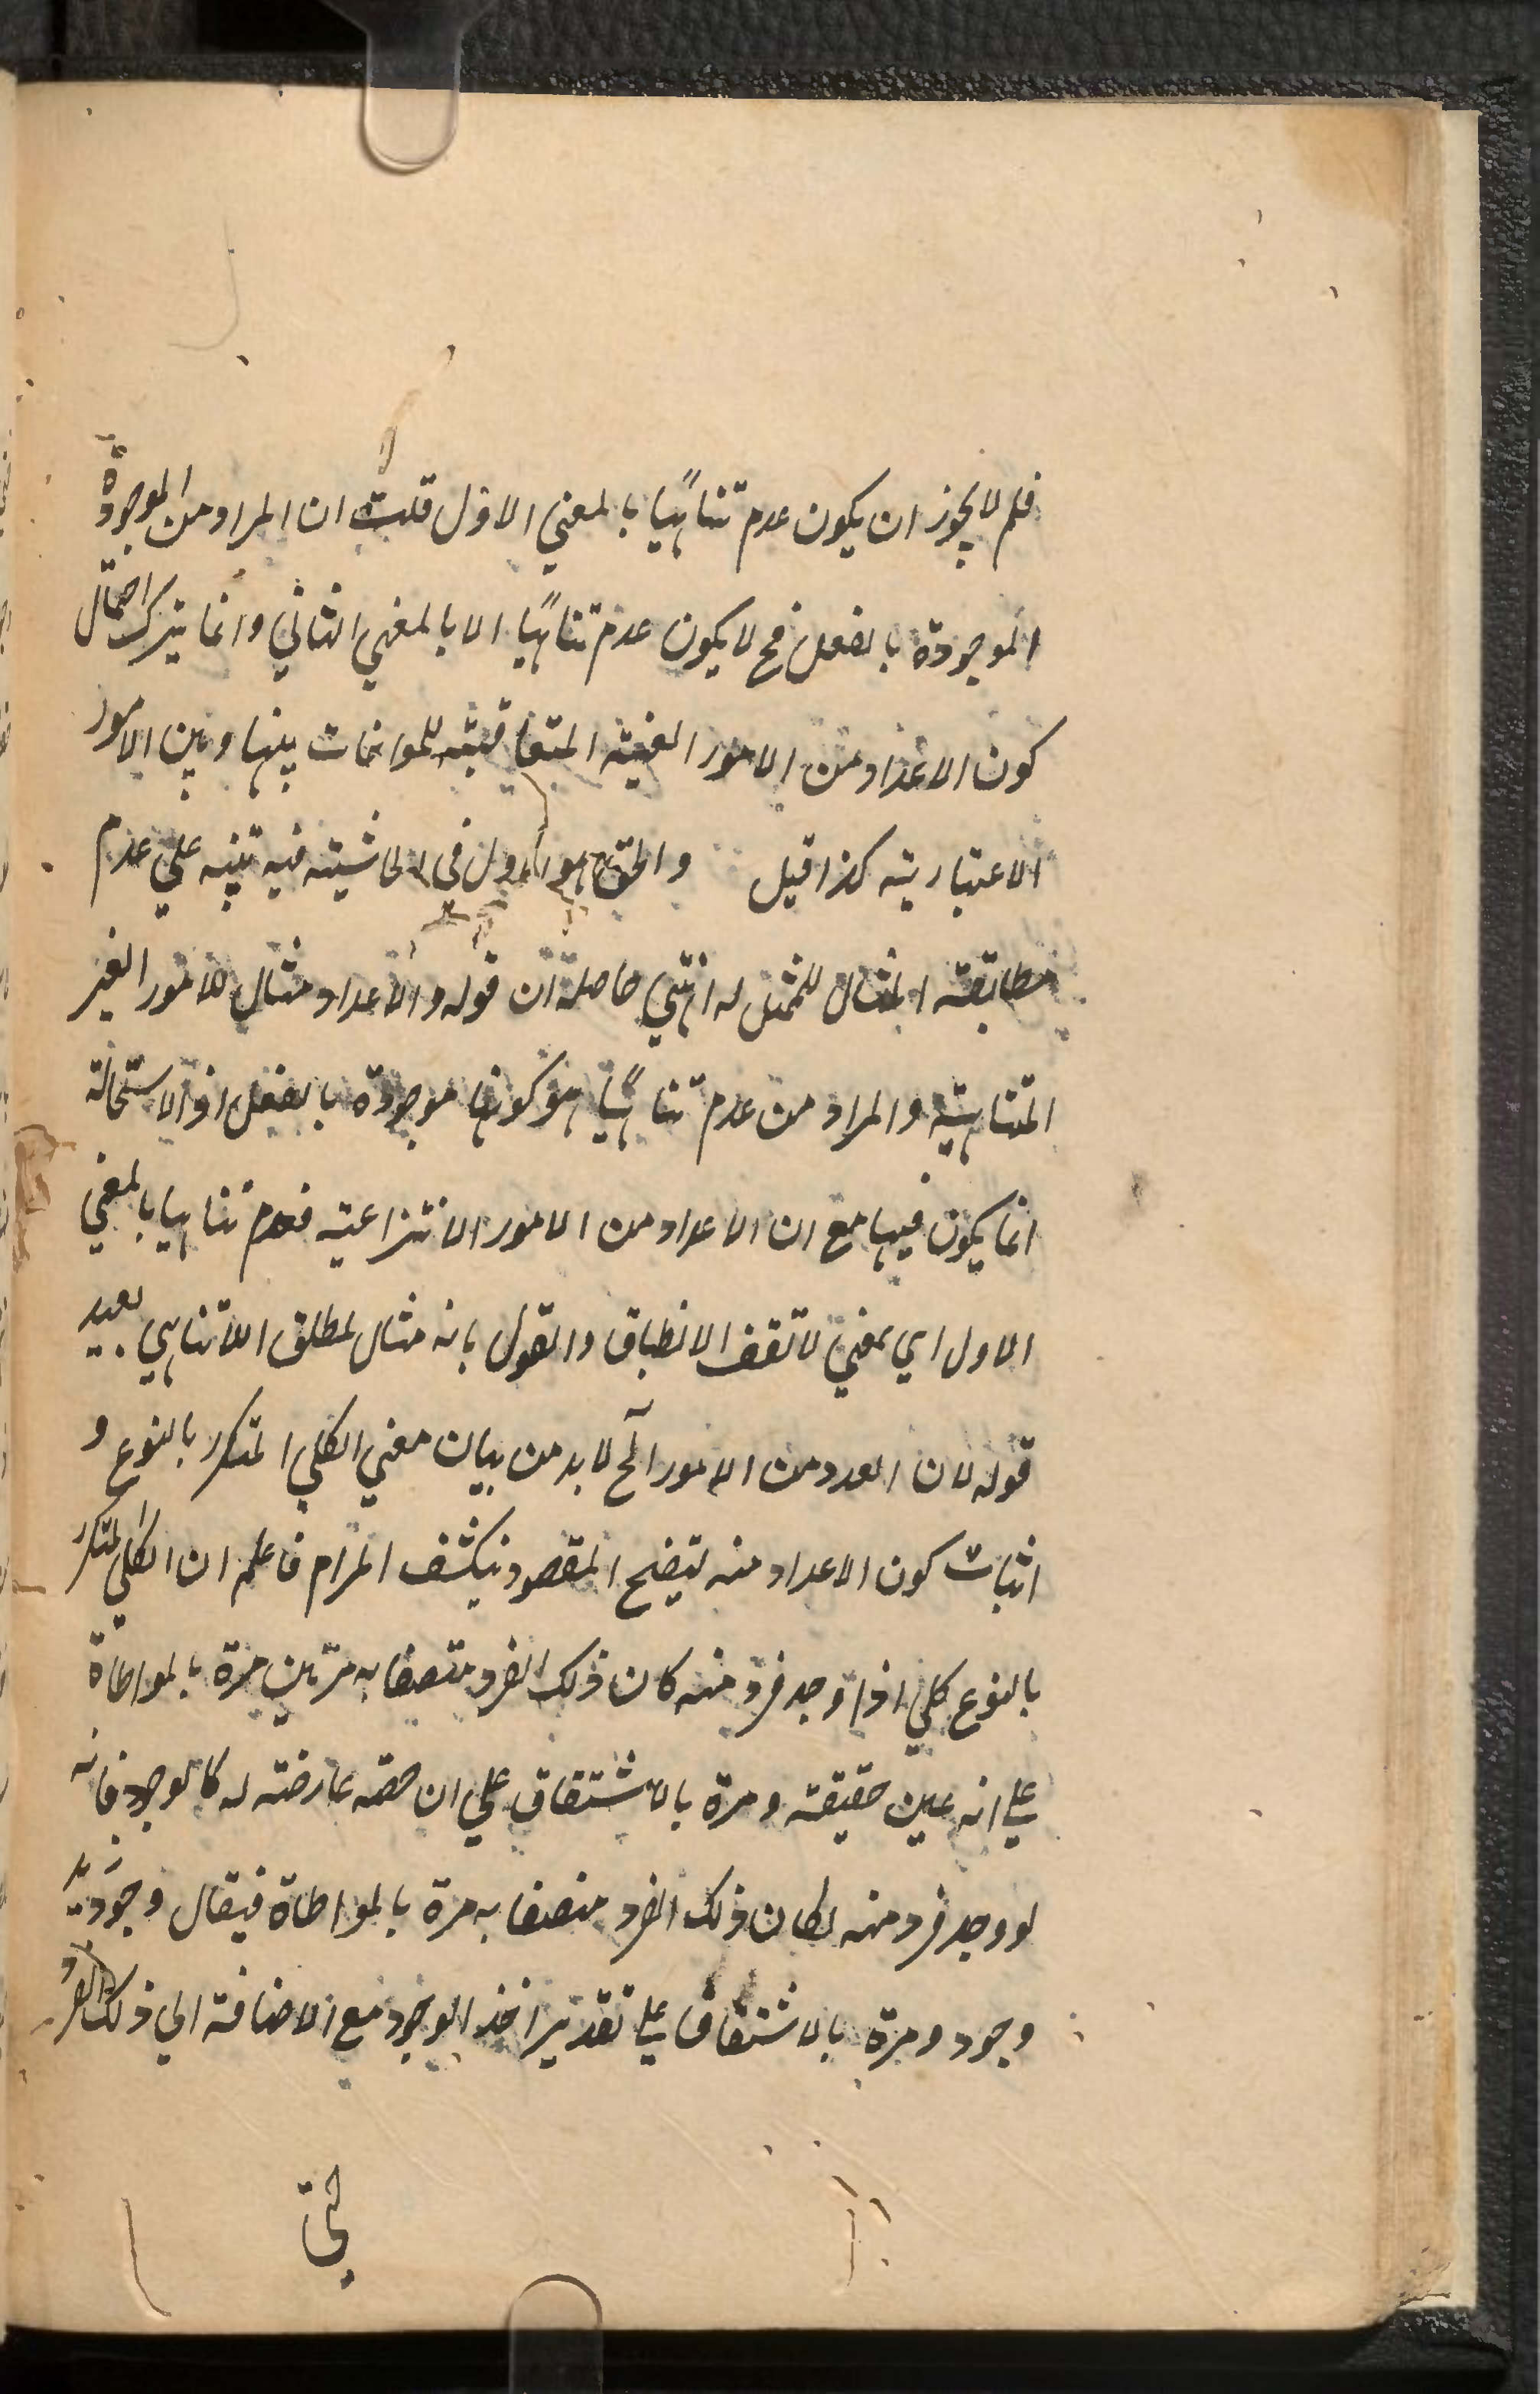 فلم لا يجوز ان يكون عدم تناهيا بالمعني الاول قلت ان المراد من الموجودة
الموجودة بالفعل فح لا يكون عدم تناهيا الا بالمعني الثاني وانما يترك احتمال
كون الاعداد من الامور الغيبية المتعاقبة بينها وبين الامور
الاعتبارية كذا قيل والحق هو الاول في الحاشية فيه تنبيه علي عدم
مطابقة المثال للممثل له انتهي حاصلة ان قوله والاعداد مثال للامور الغير
المتناهية والمراد من عدم تناهيا هو كونها موجودة بالفعل اذ الاستحالة
انما يكون فيها مع ان الاعداد من الامور الانتزاعية فعدم تناهيا بالمعني
الاول اي بمعني لا تقف الانطباق والقول بانه مثال لمطلق اللاتناهي بعيد
قوله لان العدد من الامور الخ لا بد من بيان معني الكلي المتكرر بالنوع و
اثبات كون الاعداد منه ليتضح المقصود ينكشف المرام فاعلم ان الكلي المتكرر
بالنوع كلي اذا وجد فرد منه كان ذلك الفرد متصفا به مرتين مرة بالمواطاة
علي انه عين حقيقة ومرة بالاشتقاق علي ان حصة عارضة له كالوجود فانه
لو وجد فرد منه لكان ذلك الفرد متصفا به مرة بالمواطاة فيقال وجود زيد
وجود ومرة بالاشتقاق علي تقدير اخذ الوجود مع الاضافة الي ذلك الفرد